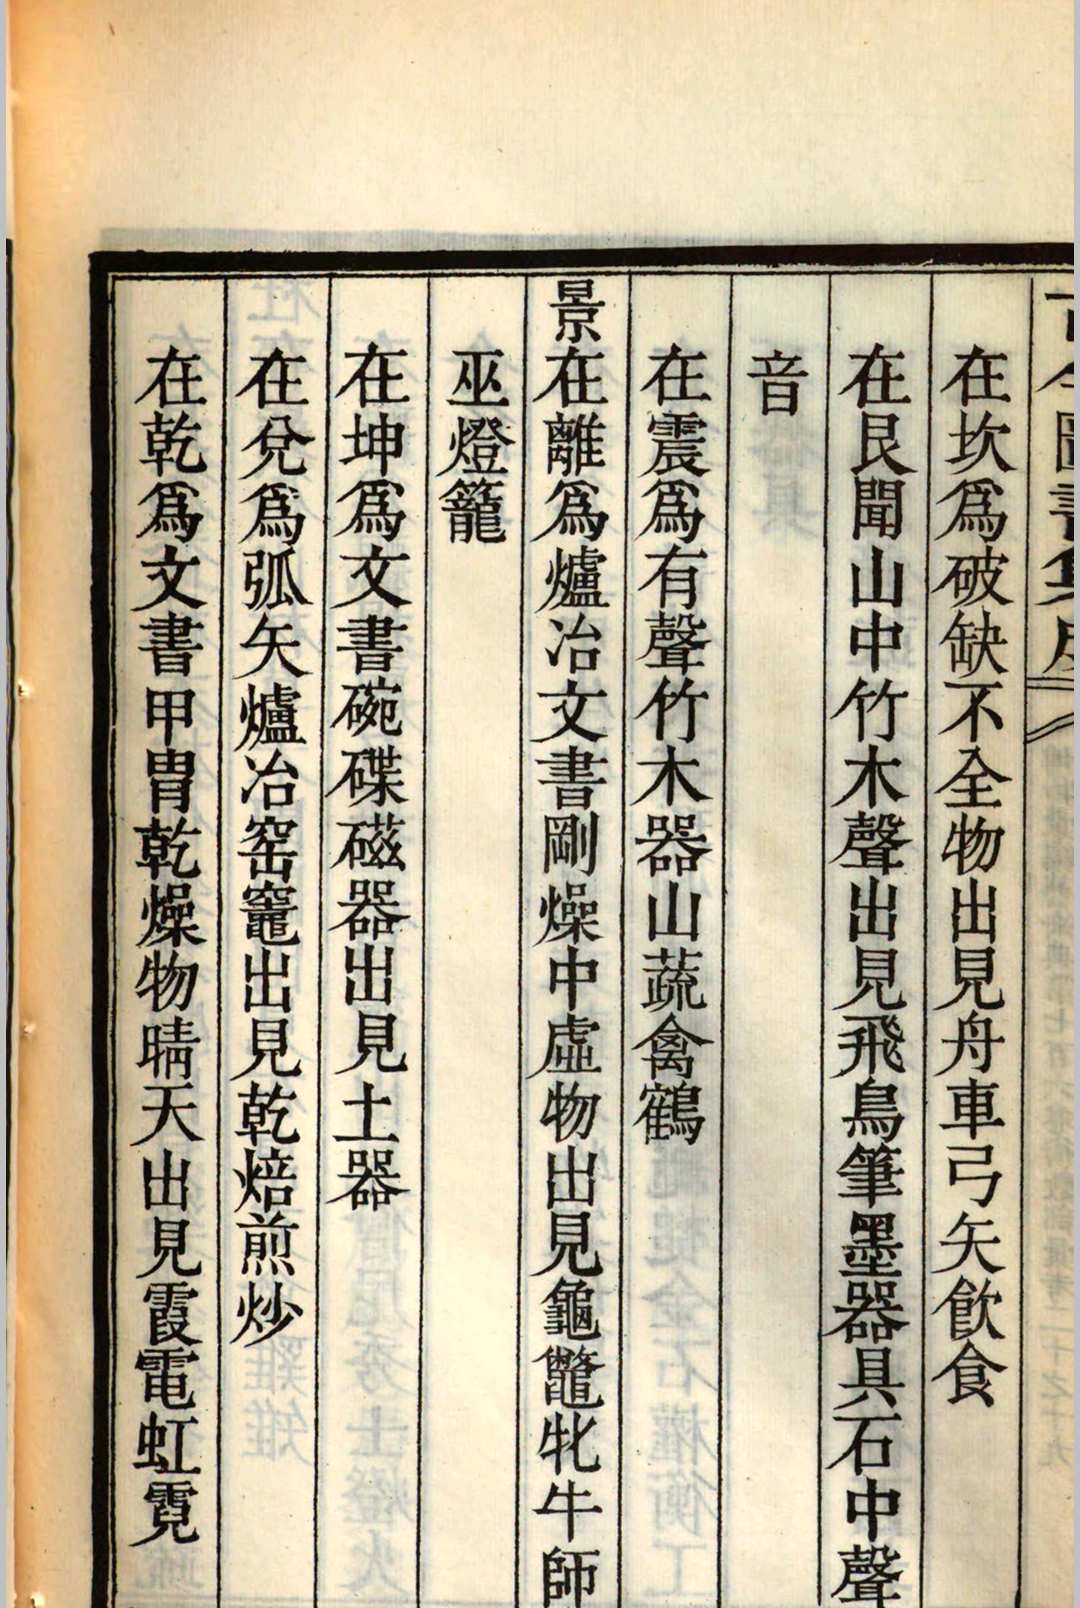 古今圖書集成
在坎爲破缺不全物出見舟車弓矢飲食
在艮聞山中竹木聲出見飛鳥筆墨器具石中聲
音
在震爲有聲竹木器山蔬禽鶴
景在離爲爐冶文書剛燥中虛物出見龜鼈牝牛師
巫燈籠
在坤爲文書碗碟磁器出見土器
在兌爲弧矢爐冶窑竈出見乾焙煎炒
在乾爲文書甲冑乾燥物晴天出見霞電虹霓